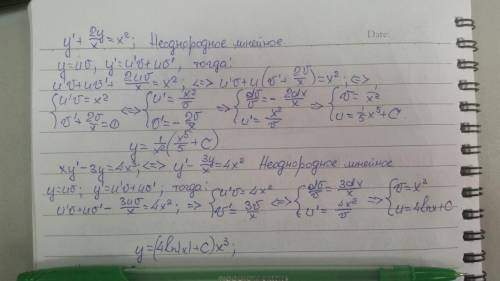 y' + 2y/x = x²; Неоднородное линейное.
y = uv, y' = u'v + uv', тогда:
u'v + uv' + 2uv/x = x²; <=> u'v + u(v' + 2v/x) = x²; <=>
{u'v = x² ; v' + 2v/x = 0 <=> {u' = x²/v ; v' = -2v/x => {dv/v = -2dx/x ; u' = x²/v => {v = 1/x² ; u = 1/5 x⁵ + C
y = 1/x² (x⁵/5 + C)
xy' - 3y = 4x³; <=> y' - 3y/x = 4x² Неоднородное линейное
y = uv; y' = u'v + uv', тогда:
u'v + uv' - 3uv/x = 4x²; => {u'v = 4x² ; v' = 3v/x <=> {dv/v = 3dx/x ; u' = 4x²/v => {v = x³ ; u = 4lnx + C
y = (4ln|x| + C)x³;
Date: